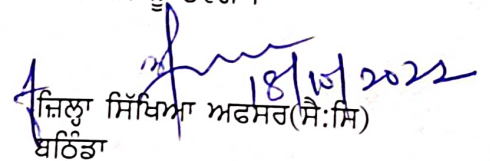 18/10/2022
ਜ਼ਿਲ੍ਹਾ ਸਿੱਖਿਆ ਅਫਸਰ(ਸੈ:ਸਿ)
ਬਠਿੰਡਾ